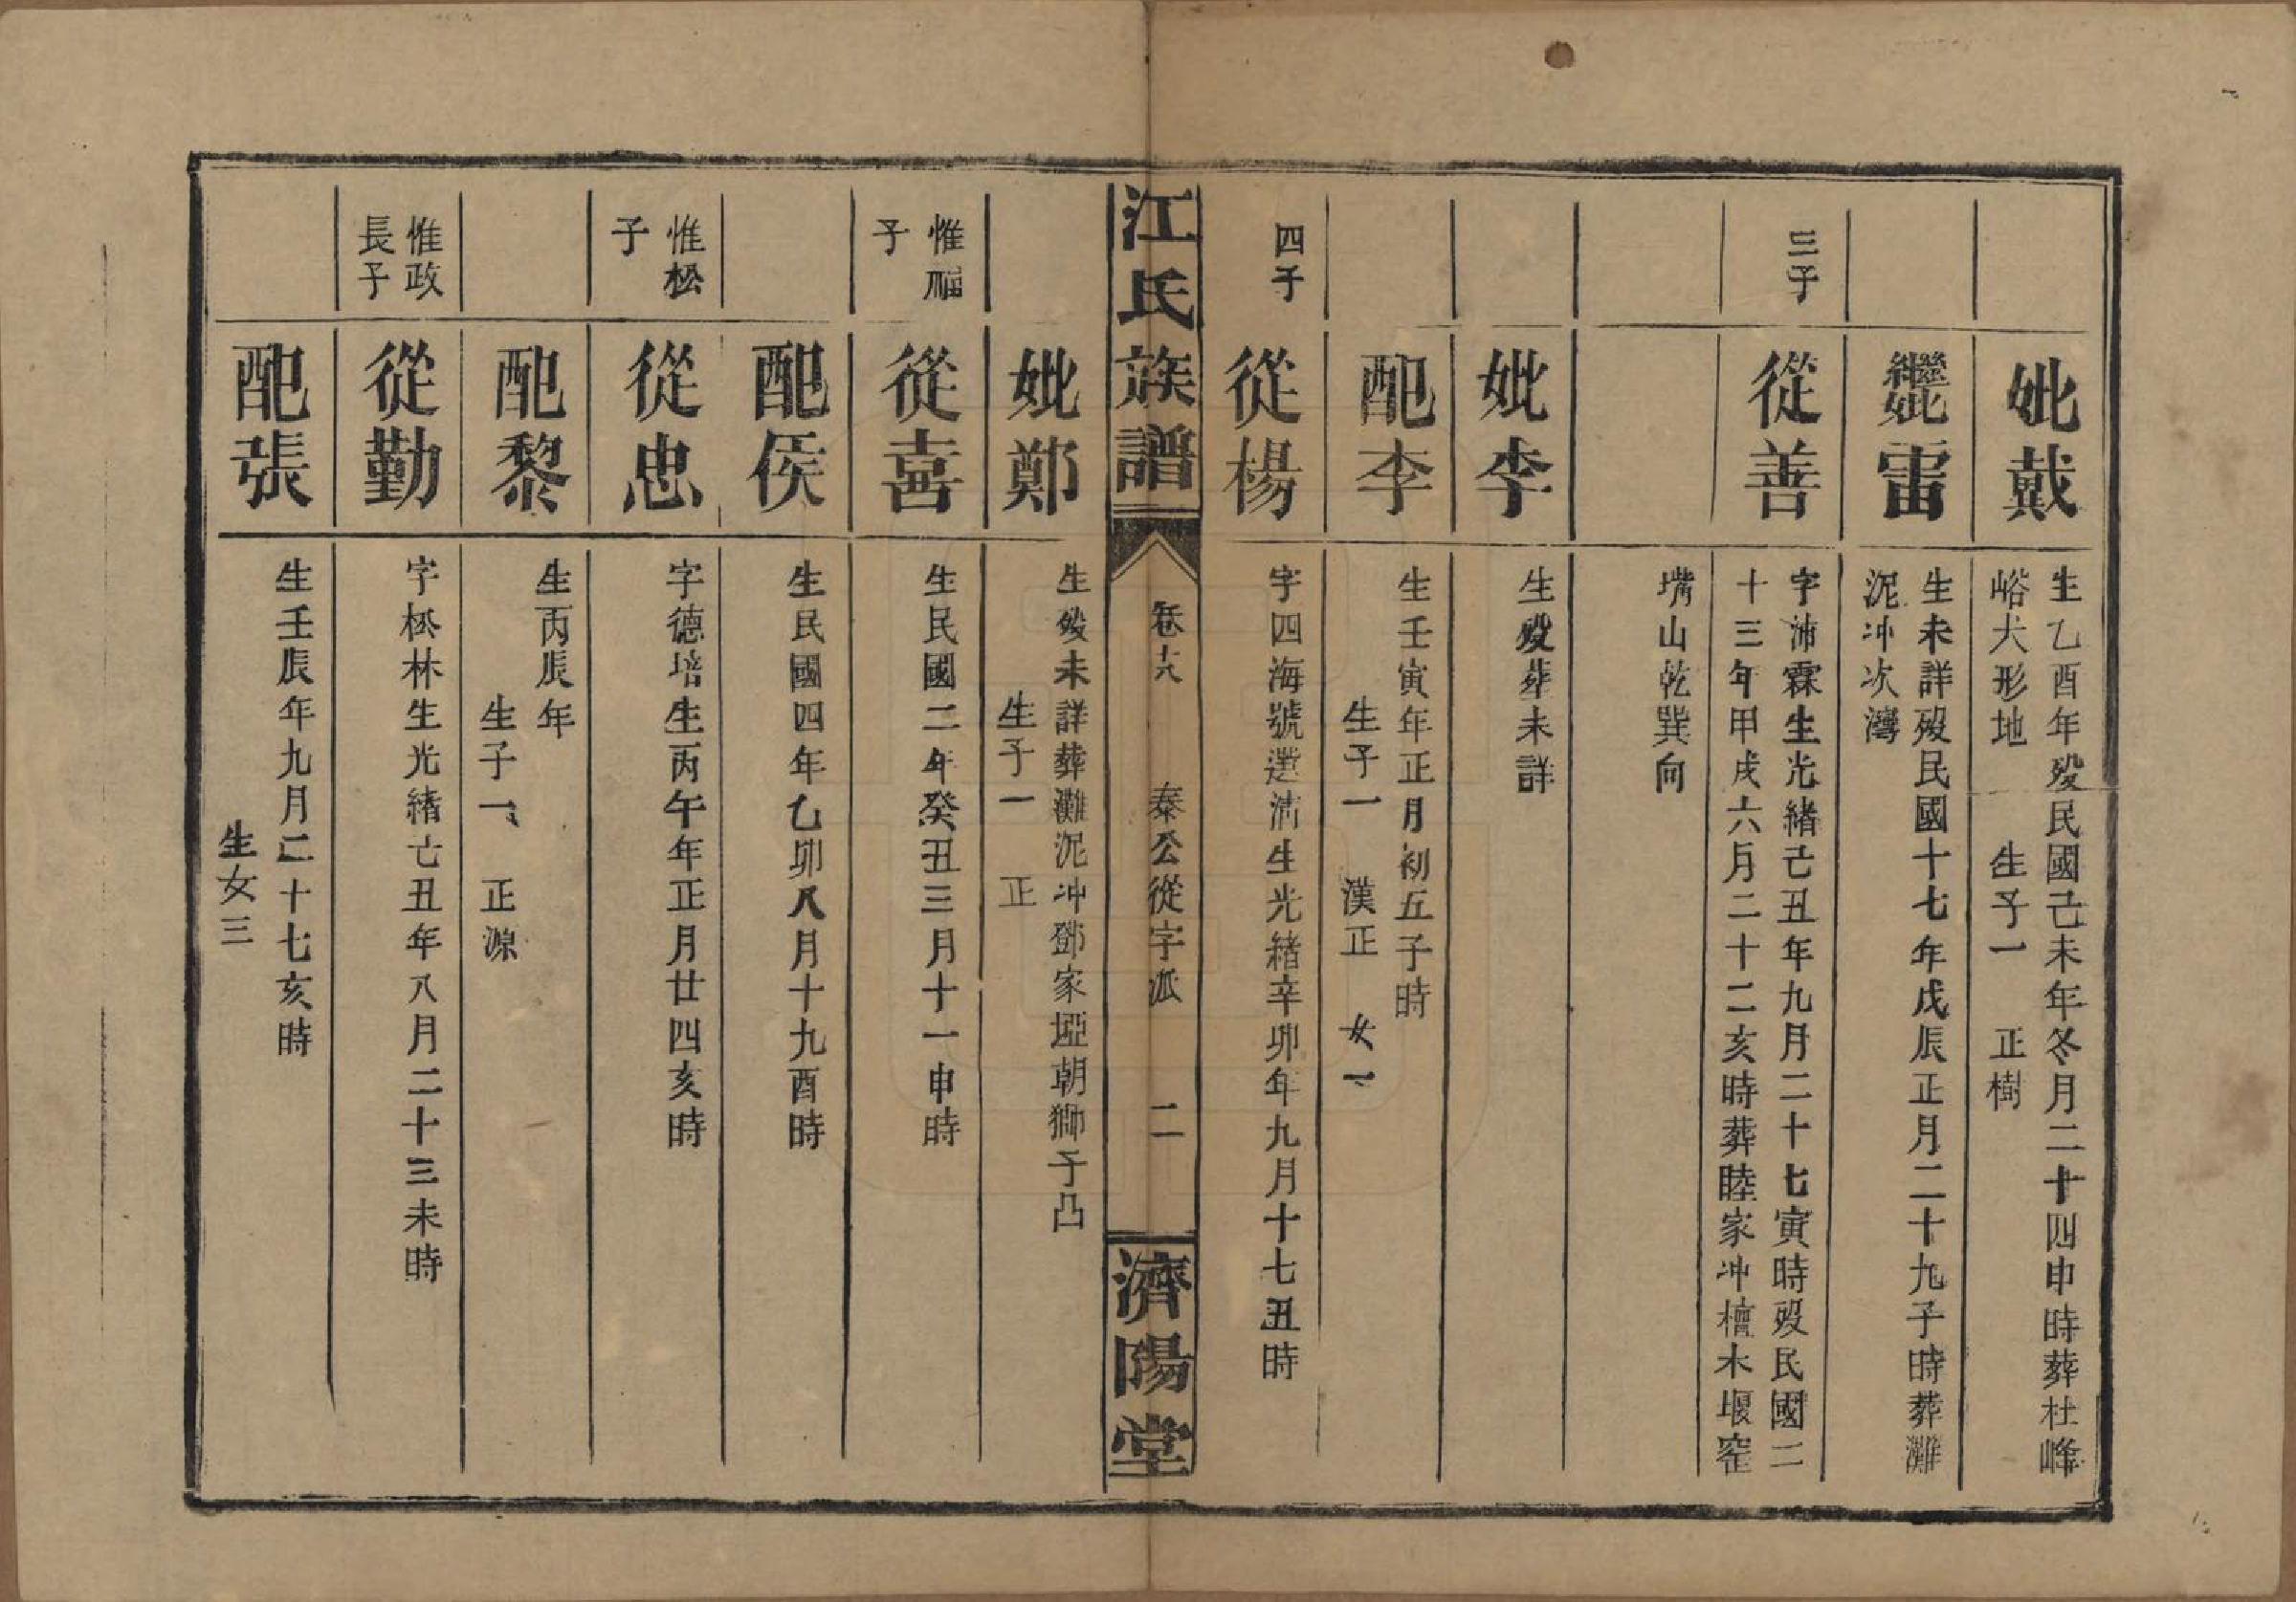 妣戴
生乙酉年歿民國己未年冬月二十四申時葬杜峰
峪犬形地 生子一 正樹
繼妣雷
生未詳歿民國十七年戊辰正月二十九子時葬灘
泥冲次灣
三子
從善
字沛霖生光緒己丑年九月二十七寅時歿民國二
十三年甲戌六月二十二亥時葬睦家冲檀木堰窑
嘴山乾巽向
妣李
生歿葬未詳
配李
生壬寅年正月初五子時
生子一 漢正 女一
四子
從楊
字四海號選清生光緒辛卯年九月十七丑時
江氏族譜
卷十八
泰公從字派
二
濟陽堂
妣鄭
生歿未詳葬灘泥冲鄧家埡朝獅子凸
生子一 正
惟福
子
從喜
生民國二年癸丑三月十一申時
配侯
生民國四年乙卯八月十九酉時
惟松
子
從忠
字德培生丙午年正月廿四亥時
配黎
生丙辰年
生子一 正源
惟政
長子
從勤
字松林生光緒亡丑年八月二十三未時
配張
生壬辰年九月二十七亥時
生女三